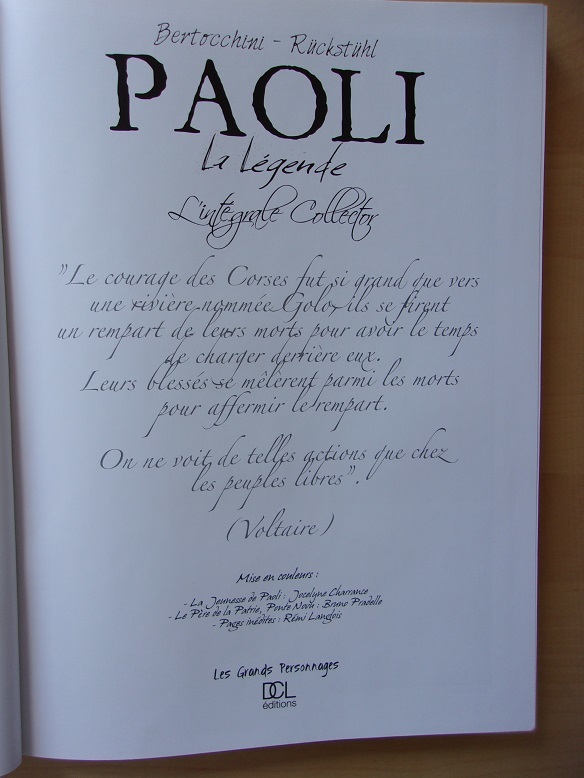 Bertocchini - Rückstühl
PAOLI
La Légende
L'intégrale Collector
"Le courage des Corses fut si grand que vers
une rivière nommée Golo, ils se firent
un rempart de leurs morts pour avoir le temps
de charger derrière eux.
Leurs blessés se mêlèrent parmi les morts
pour affermir le rempart.
On ne voit de telles actions que chez
les peuples libres".
(Voltaire)
Mise en couleurs :
- La Jeunesse de Paoli : Jocelyne Charrance
- Le Père de la Patrie, Ponte Novu : Bruno Pradelle
- Pages inédites : Rémi Langlois
Les Grands Personnages
DCL
éditions